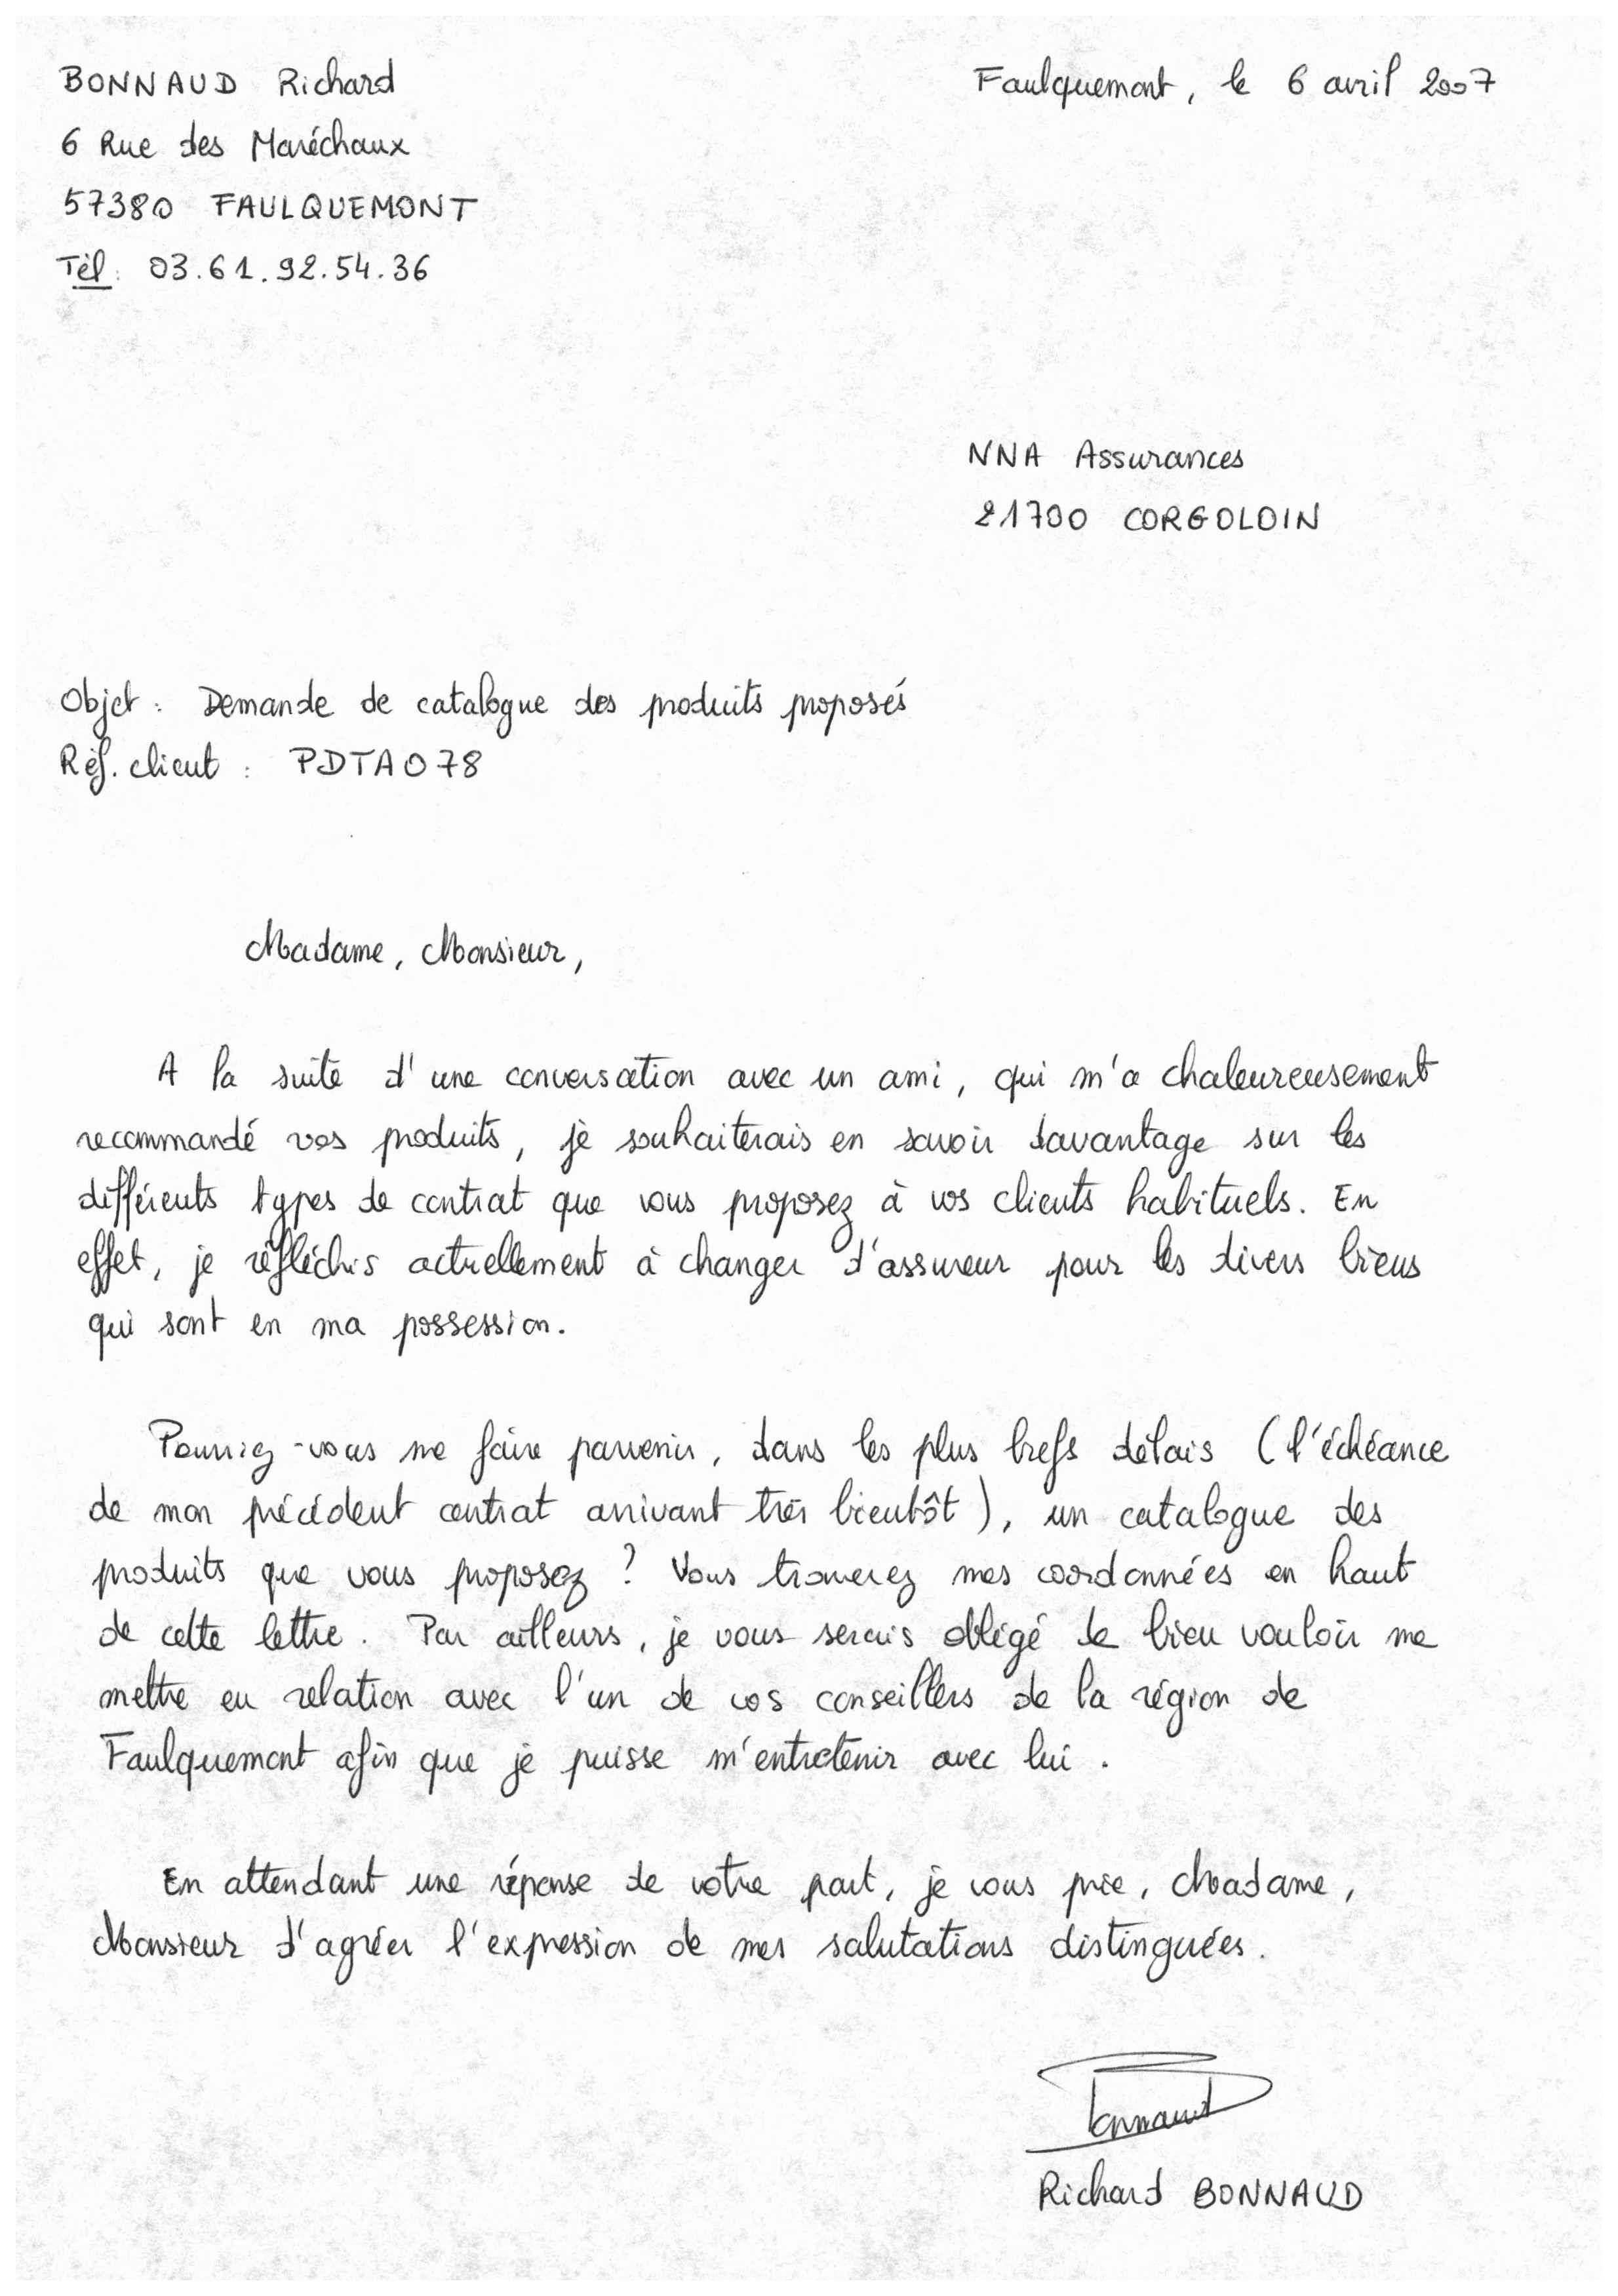 BONNAUD Richard
Faulquemont, le 6 avril 2007
6 Rue des Maréchaux
57380 FAULQUEMONT
Tél : 03.61.92.54.36
NNA Assurances
21700 CORGOLOIN
Objet : Demande de catalogue des produits proposés
Réf. client : PDTAO78
Madame, Monsieur,
A la suite d'une conversation avec un ami, qui m'a chaleureusement
recommandé vos produits, je souhaiterais en savoir davantage sur les
différents types de contrat que vous proposez à vos clients habituels. En
effet, je réfléchis actuellement à changer d'assureur pour les divers biens
qui sont en ma possession.
Pourriez-vous me faire parvenir, dans les plus brefs délais (l'échéance
de mon précédent contrat arrivant très bientôt), un catalogue des
produits que vous proposez ? Vous trouverez mes coordonnées en haut
de cette lettre. Par ailleurs, je vous serais obligé de bien vouloir me
mettre en relation avec l'un de vos conseillers de la région de
Faulquemont afin que je puisse m'entretenir avec lui.
En attendant une réponse de votre part, je vous prie, Madame,
Monsieur d'agréer l'expression de mes salutations distinguées.
Bonnaud
Richard BONNAUD